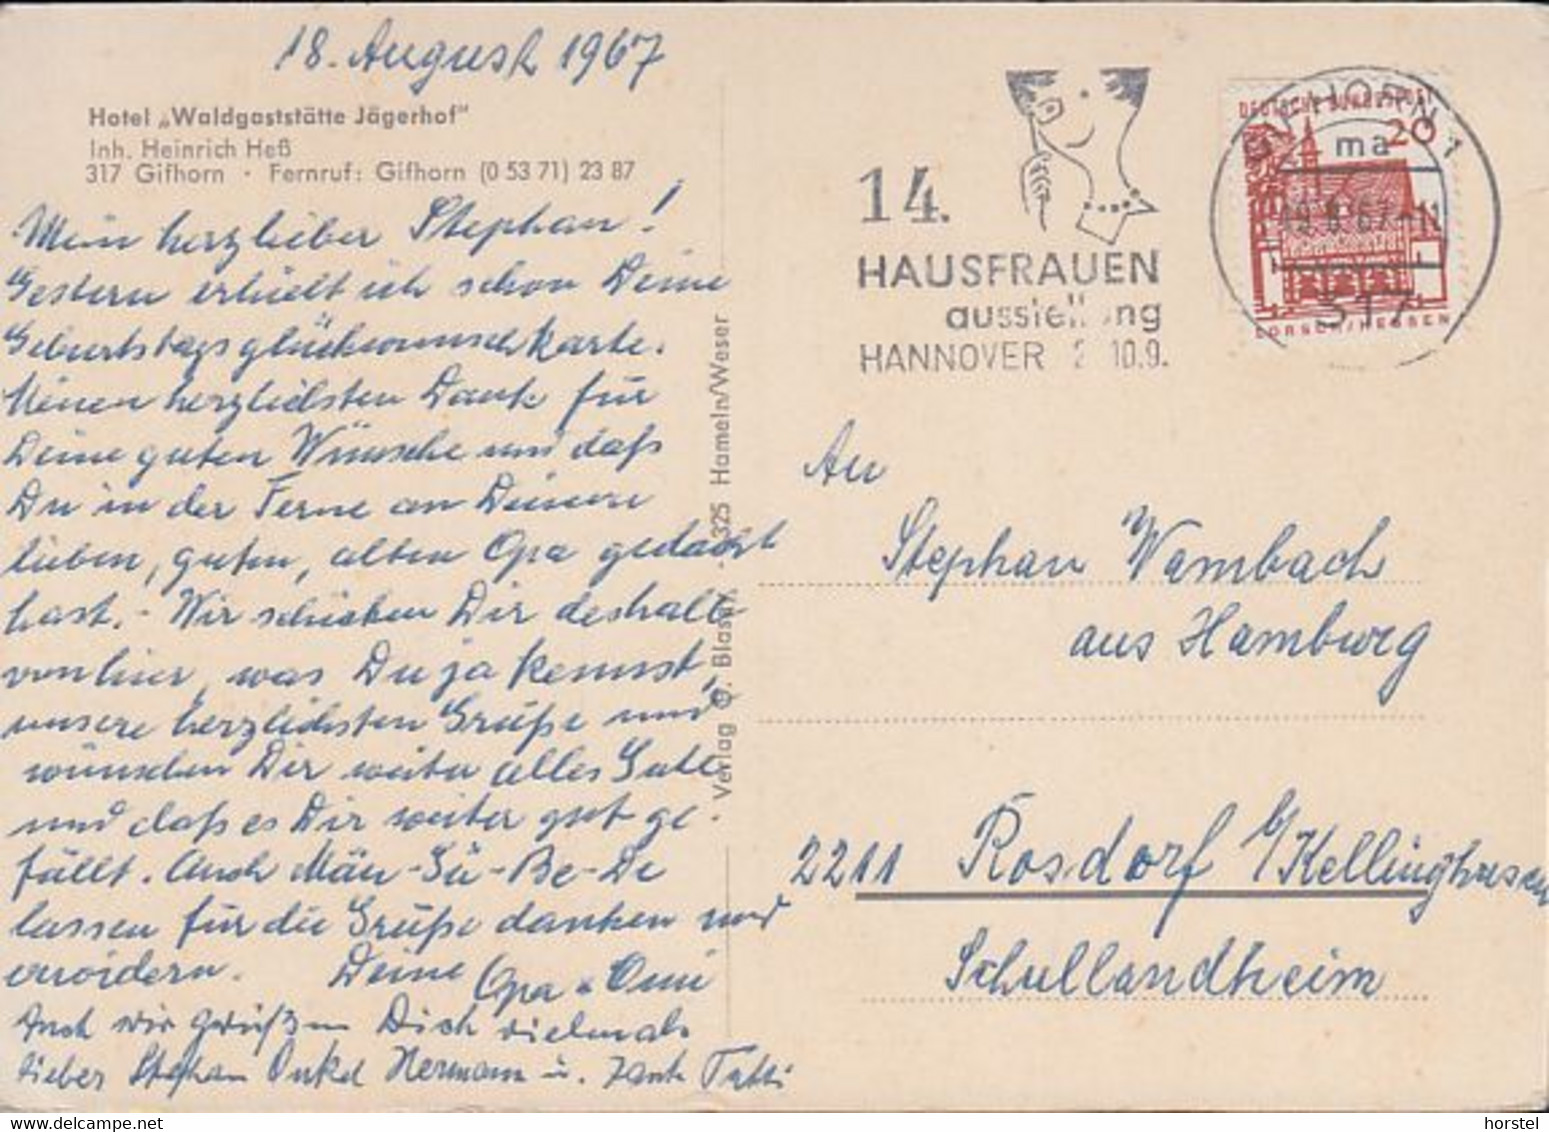 18. August 1967
Hotel „Waldgaststätte Jägerhof"
Inh. Heinrich Heß
317 Gifhorn · Fernruf: Gifhorn (0 53 71) 23 87
Mein herzlieber Stephan!
Gestern erhielt ich schon Deine
Geburtstagsglückwunschkarte.
Meinen herzlichsten Dank für
Deine guten Wünsche und daß
Du in der Ferne an Deinen
lieben, guten, alten Opa gedacht
hast. - Wir schicken Dir deshalb
von hier, was Du ja kennst,
unsere herzlichsten Grüße und
wünschen Dir weiter alles Gute
und daß es Dir weiter gut ge-
fällt. Auch Mäu-Sü-Be-De
lassen für die Grüße danken und
erwidern. Deine Opa u Omi
Auch wir grüßen Dich vielmals
lieber Stephan Onkel Hermann u. Tante Tutti
Verlag O. Blaset, 325 Hameln/Weser
14.
HAUSFRAUEN
ausstellung
HANNOVER 2 10.9.
DEUTSCHE BUNDESPOST
20
LORSCH/HESSEN
GIFHORN 1
ma
19.8.67-11
317
An
Stephan Wambach
aus Hamburg
2211 Rosdorf b/Kellinghusen
Schullandheim
horstel
Visit DELCAMPE.NET